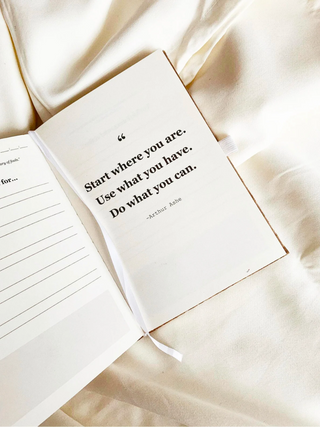 for...
“
Start where you are.
Use what you have.
Do what you can.
-Arthur Ashe